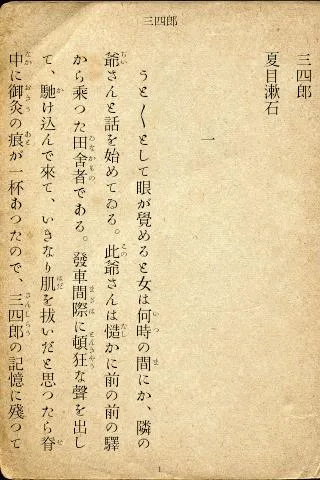 三四郎
三四郎
夏目漱石
一
うと〳〵として眼が覺めると女は何時の間にか、隣の
爺さんと話を始めてゐる。此爺さんは慥かに前の前の驛
から乘つた田舍者である。發車間際に頓狂な聲を出し
て、馳け込んで來て、いきなり肌を拔いだと思つたら脊
中に御灸の痕が一杯あつたので、三四郎の記憶に殘つて
1